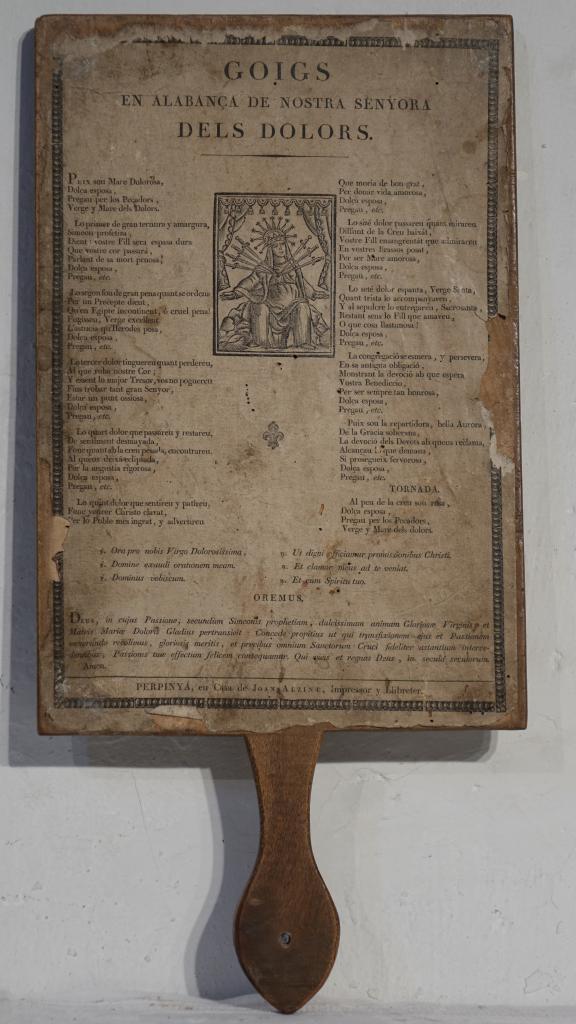 GOIGS
EN ALABANÇA DE NOSTRA SENYORA
DELS DOLORS.
Puix sou Mare Dolorosa,
Dolça esposa,
Pregau per los Pecadors,
Verge y Mare dels Dolors.
Lo primer de gran ternura y amargura,
Simeon profetisa,
Dient: vostre Fill sera espasa dura
Que vostre cor passará,
Parlant de sa mort penosa:
Dolça esposa,
Pregau, etc.
Lo segon fou de gran pena quant se ordena
Per un Precepte dient,
Qu'en Egipte incontinent, ó cruel pena!
Fugisseu, Verge excellent
L'astucia qu'Herodes posa,
Dolça esposa,
Pregau, etc.
Lo tercer dolor tinguereu quant perdereu,
Al que roba nostre Cor;
Y essent lo major Tresor, vos no poguereu
Fins trobar tant gran Senyor,
Estar un punt ossiosa,
Dolça esposa,
Pregau, etc.
Lo quart dolor que passareu y restareu,
De sentiment desmayada,
Fonc quant ab la creu pesada, encontrareu.
Al queus deixa eclipsada,
Per la angustia rigorosa,
Dolça esposa,
Pregau, etc.
Lo quint dolor que sentireu y patireu,
Fonc veurer Christo clavat,
Per lo Poble més ingrat, y advertireu
Que moria de bon grat,
Per donar vida amorosa,
Dolça esposa,
Pregau, etc.
Lo sisé dolor passareu quant mirareu
Diffunt de la Creu baixat,
Vostre Fill ensangrentat que admirareu
En vostres Brassos posat,
Per ser Mare amorosa,
Dolça esposa,
Pregau, etc.
Lo seté dolor espanta, Verge Santa,
Quant trista lo accompanyareu,
Y al sepulcre lo entregareu, Sacrosanta,
Restant sens lo Fill que amaveu,
O que cosa llastimosa!
Dolça esposa,
Pregau, etc.
La congregació se esmera, y persevera,
En sa antigua obligació,
Monstrant la devoció ab que espera
Vostra Benediccio,
Per ser sempre tan honrosa,
Dolça esposa,
Pregau, etc.
Puix sou la repartidora, bella Aurora
De la Gracia soberana,
La devoció dels Devots ab queus reclama,
Alcançau lo que demana,
Si prosegueix fervorosa,
Dolça esposa,
Pregau, etc.
TORNADA.
Al peu de la creu sou rosa,
Dolça esposa,
Pregau per los Pecadors,
Verge y Mare dels dolors.
℣. Ora pro nobis Virgo Dolorosissima,
℟. Ut digni efficiamur promissionibus Christi.
℣. Domine exaudi orationem meam.
℟. Et clamor meus ad te veniat.
℣. Dominus vobiscum.
℟. Et cum Spiritu tuo.
OREMUS.
Deus, in cujus Passione, secundum Simeonis prophetiam, dulcissimam animam Gloriosæ Virginis et
Matris Mariæ Doloris Gladius pertransivit: Concede propitius ut qui transfixionem ejus et Passionem
venerando recolimus, gloriosis meritis, et precibus omnium Sanctorum Cruci fideliter astantium interce-
dentibus, Passionis tuæ effectum felicem consequamur. Qui vivis et regnas Deus, in seculá seculorum.
Amen.
PERPINYÁ, en Casa de JOAN ALZINE, Impressor y Llibreter.